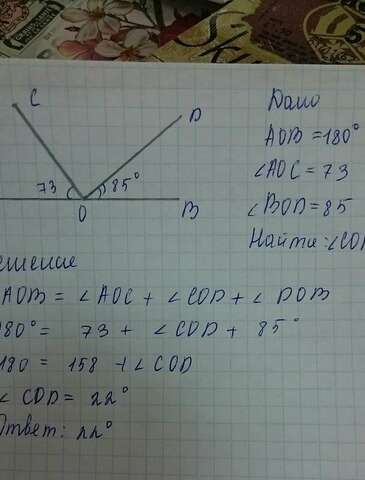 C
D
73
85°
O
B
Дано
AOB =180°
∠AOC = 73
∠BOD = 85
Найти :∠COD
ешение
AOB = ∠AOC + ∠COD + ∠DOB
180° = 73 + ∠COD + 85°
180 = 158 + ∠COD
∠ COD = 22°
Ответ: 22°